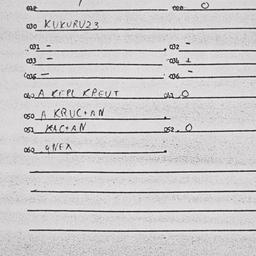 028 020 O
030 KUKURUZ3
031 - 032 -
033 - 034 1
035 - 036 -
040 A KEPL KPEUT 043 O
050 A KRUC+AN
051 KAC+AN 052 . O
060 GNEX